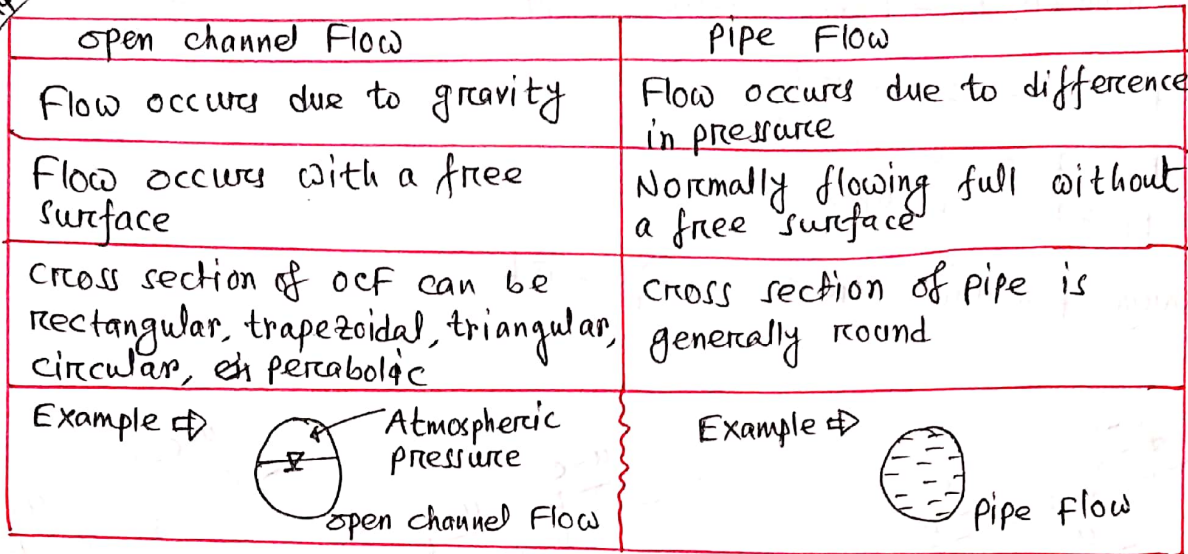 open channel Flow
Pipe Flow
Flow occurs due to gravity
Flow occurs due to difference
in pressure
Flow occurs with a free
surface
Normally flowing full without
a free surface
cross section of OCF can be
rectangular, trapezoidal, triangular,
circular, perabolic
cross section of pipe is
generally round
Example ⇨
Atmospheric
pressure
open channel Flow
Example ⇨
pipe flow